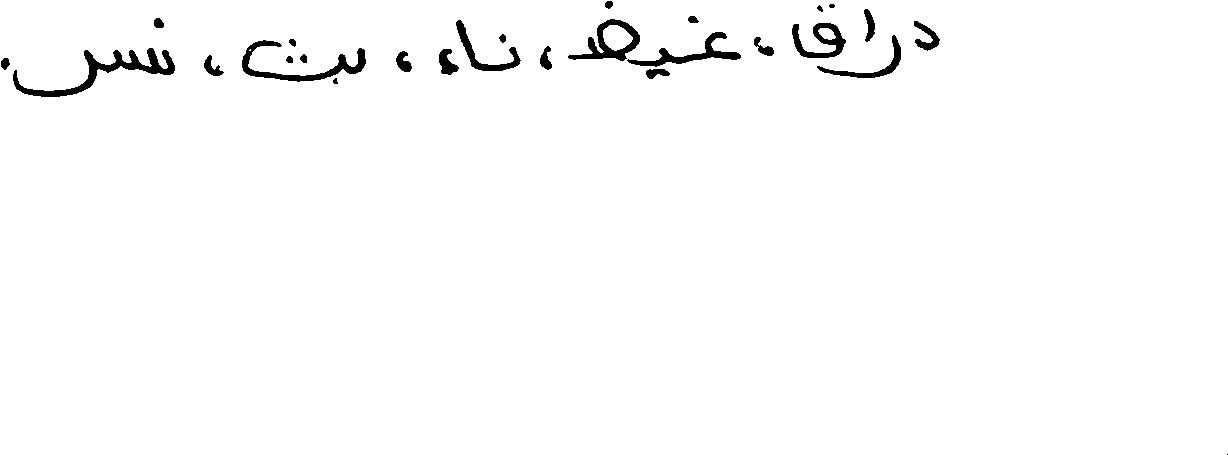 دراق، غيض، ناء، بث، نس.